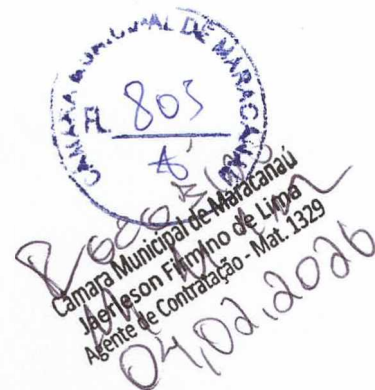 CÂMARA MUNICIPAL DE MARACANAÚ
FL. 803
Câmara Municipal de Maracanaú
Jaerleson Firmino de Lima
Agente de Contratação - Mat. 1329
04,02,2026